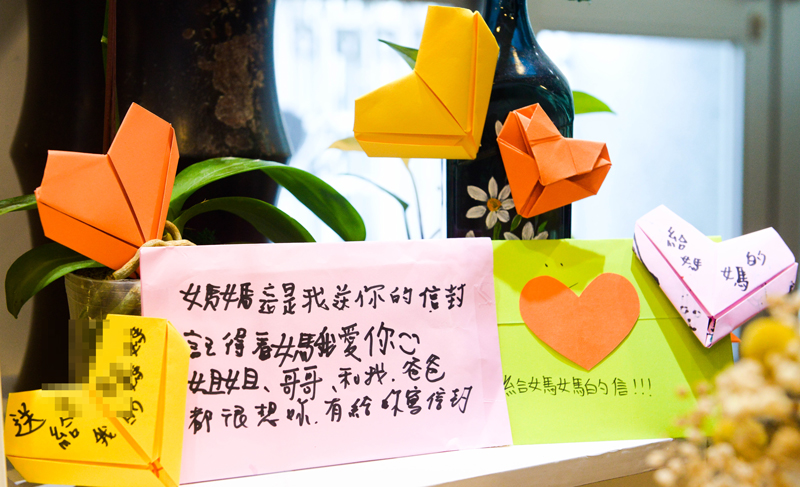 給媽媽的
媽媽這是我送你的信封
記得看媽我愛你
姐姐、哥哥、和我.爸爸
都很想妳.有給妳寫信封
給媽媽的信!!!
送給我的